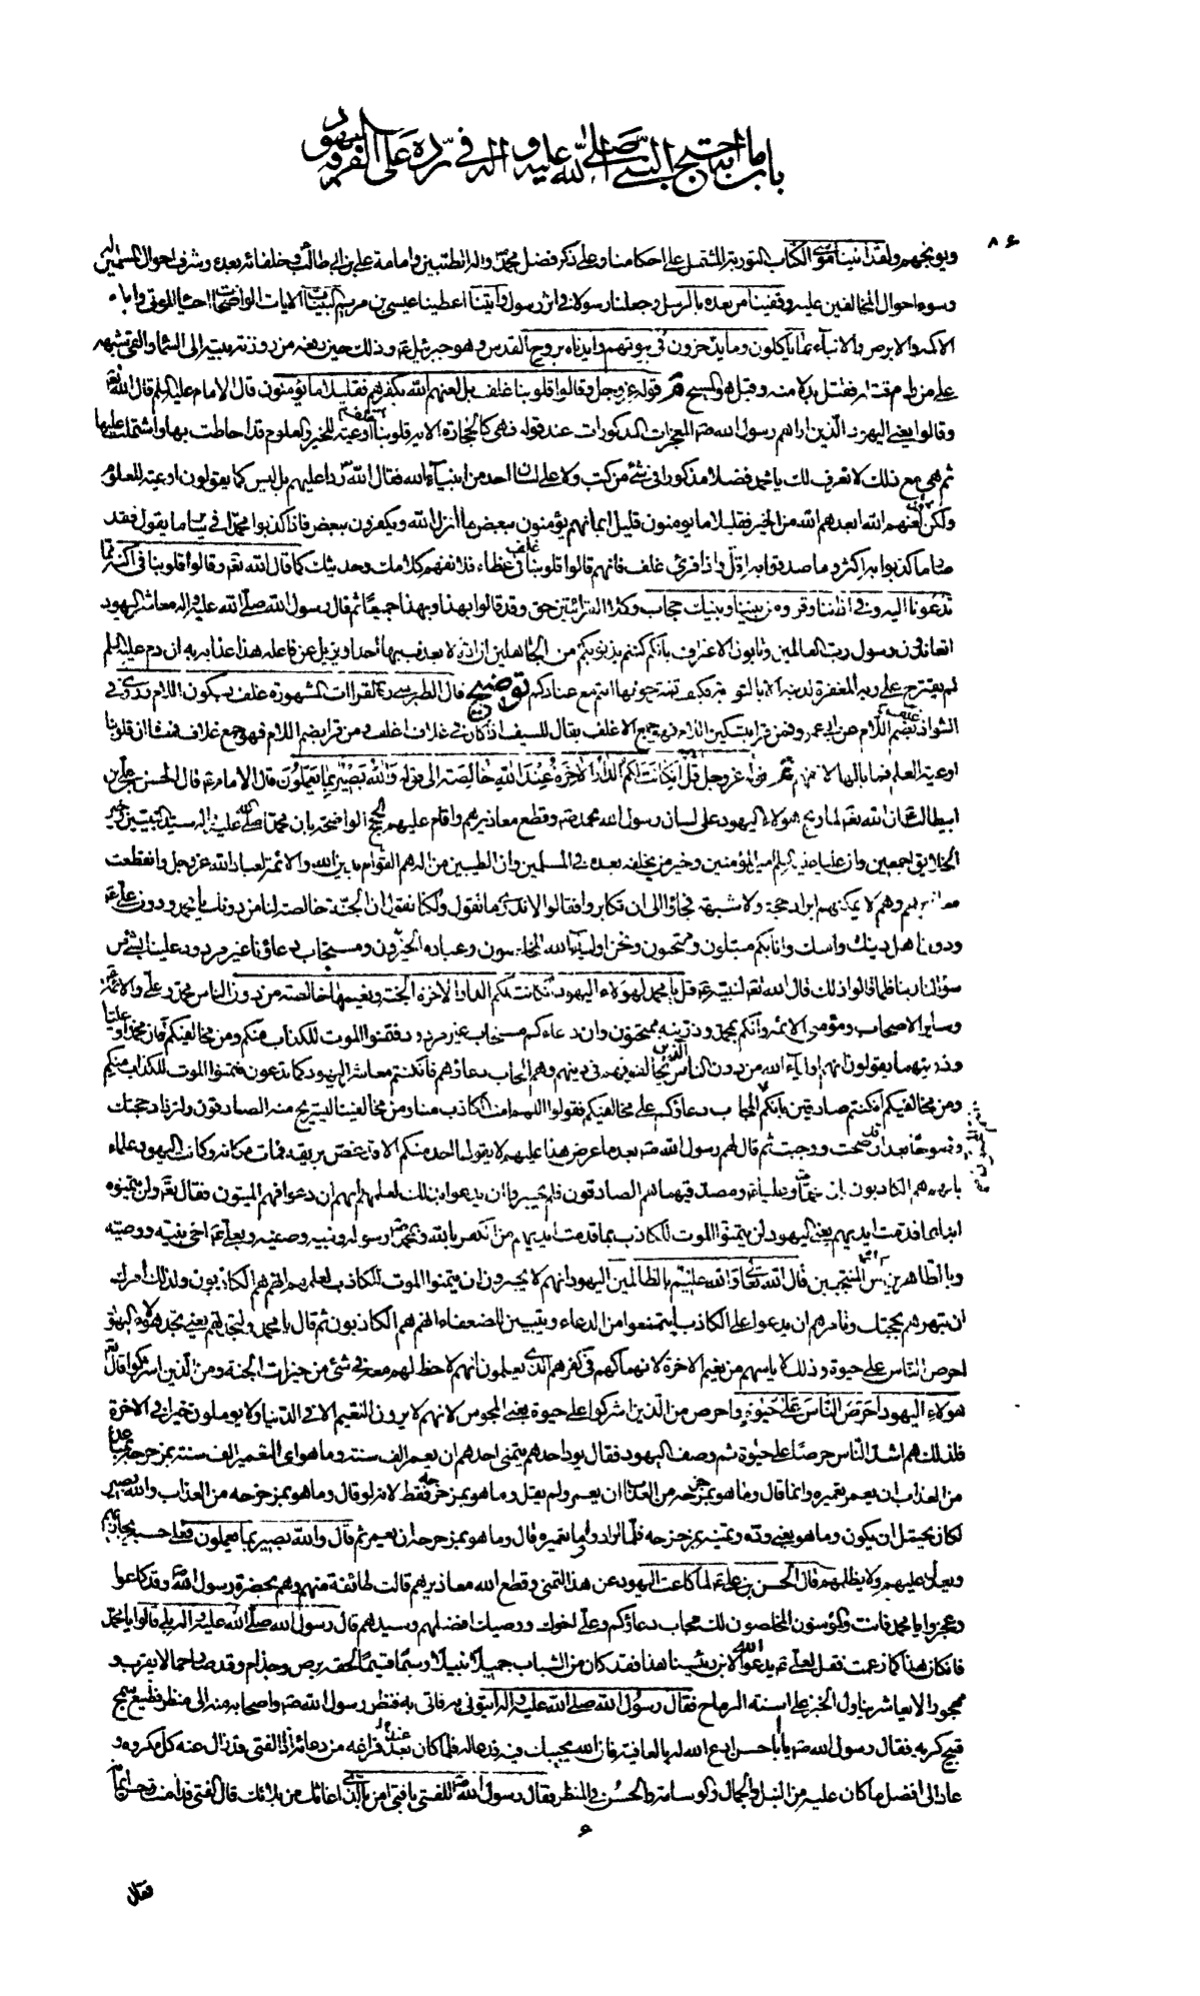 باب ما احتج به النبي صلى الله عليه واله في رده على الفرقة اليهود
٨٤
ويوبخهم ولقد اتينا موسى الكتاب التورية المشتمل على احكامنا وعلى ذكر فضل محمد واله الطيبين وامامة علي بن ابي طالب وخلفائه بعده وشرف احوال المسلمين له
وسوء احوال المخالفين عليه وقفينا من بعده بالرسل وجعلنا رسولا في اثر رسول واتينا اعطينا عيسى بن مريم البينات الايات الواضحات احياء الموتى وابراء
الاكمه والابرص والانباء بما ياكلون وما يدخرون في بيوتهم وايدناه بروح القدس وهو جبرئيل ع وذلك حين رفعه من روزنة بيته الى السماء والقى شبهه
على من رام قتله فقتل بدلا منه وقيل هو المسيح قوله عز وجل وقالوا قلوبنا غلف بل لعنهم الله بكفرهم فقليلا ما يؤمنون قال الامام عليه السلم قال الله تع
وقالوا يعني اليهود الذين اراهم رسول الله صه المعجزات المذكورات عند قوله فهي كالحجارة الاية قلوبنا غلف اوعية للخير والعلوم قد احاطت بها واشتملت عليها
ثم هي مع ذلك لا تعرف لك يا محمد فضلا مذكورا في شئ من كتب ولا على لسان احد من انبياء الله فقال الله ردا عليهم بل ليس كما يقولون اوعية للعلوم
ولكن لعنهم الله ابعدهم الله من الخير فقليلا ما يومنون قليل ايمانهم يؤمنون ببعض ما انزل الله ويكفرون ببعض فاذا كذبوا محمدا في سائر ما يقول فقد
صار ما كذبوا به اكثر وما صدقوا به اقل واذا قرئ غلف فانهم قالوا قلوبنا غلف في غطاء فلا نفهم كلامك وحديثك كما قال الله تع وقالوا قلوبنا في اكنة مما
تدعونا اليه وفي اذاننا وقر ومن بيننا وبينك حجاب وكلتا القرائتين حق وقد قالوا بهذا وبهذا جميعا ثم قال رسول الله صلى الله عليه واله معاشر اليهود
اتعاندون رسول رب العالمين وتابون الاعتراف بانكم كنتم بذنوبكم من الجاهلين ان الله لا يعذب بها احدا ويزيل عن فاعله هذا عذابه به ان ادم عليه السلم
لم يقترح على ربه المغفرة لذنبه الا بالتوبة فكيف تقترحونها انتم مع عنادكم توضيح قال الطبرسي ره القراات المشهورة غلف بسكون اللام وروى في
الشواذ غلف بضم اللام عن ابي عمرو فمن قرا بتسكين اللام فهو جمع الاغلف يقال للسيف اذا كان في غلاف اغلف ومن قرا بضم اللام فهو جمع غلاف فمعناه ان قلوبنا
اوعية العلم فما بالها لا تفهم قوله عز وجل قل ان كانت لكم الدار الاخرة عند الله خالصة الى قوله والله بصير بما يعملون قال الامام ع قال الحسن بن علي بن
ابيطالب ان الله تع لما وبخ هؤلاء اليهود على لسان رسول الله محمد صه وقطع معاذيرهم واقام عليهم الحجج الواضحة بان محمدا صلى الله عليه واله سيد النبيين وخير
الخلايق اجمعين وان عليا عليه السلم امير المؤمنين وخير من يخلفه بعده في المسلمين وان الطيبين من اله هم القوام بدين الله والائمة لعباد الله عز وجل وانقطعت
معاذيرهم وهم لا يمكنهم ايراد حجة ولا شبهة فجاؤا الى ان تكابروا فقالوا لا ندري ما نقول ولكنا نقول ان الجنة خالصة لنا من دونك يا محمد ودون علي ع
ودون اهل دينك وامتك وانا بكم مبتلون وممتحنون ونحن اولياء الله المخلصون وعباده الخيرون ومستجاب دعاؤنا غير مردود علينا بشئ من
سؤالنا ربنا فلما قالوا ذلك قال الله تع لنبيه ع قل يا محمد لهؤلاء اليهود ان كانت لكم الدار الاخرة الجنة ونعيمها خالصة من دون الناس محمد وعلي والائمة
وساير الاصحاب ومؤمني الامة وانكم بمحمد وذريته ممتحنون وان دعاءكم مستجاب غير مردود فتمنوا الموت للكذاب منكم ومن مخالفيكم فان محمدا وعليا
وذريتهما يقولون انهم اولياء الله من دون الناس الذين يخالفونهم في دينهم وهم المجاب دعاؤهم فان كنتم معاشر اليهود كما تدعون فتمنوا الموت للكذاب منكم
ومن مخالفيكم ان كنتم صادقين بانكم المجاب دعاؤكم على مخالفيكم فقولوا اللهم امت الكاذب منا ومن مخالفينا ليستريح منه الصادقون ولتزداد حجتك
وضوحا بعد ان قد صحت ووجبت ثم قال لهم رسول الله صه بعد ما عرض هذا عليهم لا يقولها احد منكم الا قد غص بريقه فمات مكانه وكانت اليهود علماء
بانهم هم الكاذبون وان محمدا وعليا ع ومصدقيهما هم الصادقون فلم يجسروا ان يدعوا بذلك لعلمهم بانهم ان دعوا فهم الميتون فقال تع ولن يتمنوه
ابدا بما قدمت ايديهم يعني اليهود لن يتمنوا الموت للكاذب بما قدمت ايديهم من الكفر بالله وبمحمد رسوله ونبيه وصفيه وبعلي ع اخي نبيه ووصيه
وبالطاهرين من الائمة المنتجبين قال الله تعالى والله عليم بالظالمين اليهود انهم لا يجسرون ان يتمنوا الموت للكاذب لعلمهم انهم هم الكاذبون ولذلك امرك
ان تبهرهم بحجتك وتامرهم ان يدعوا على الكاذب ليمتنعوا من الدعاء ويتبين للضعفاء انهم هم الكاذبون ثم قال يا محمد ولتجدنهم يعني تجد هؤلاء اليهود
احرص الناس على حيوة وذلك لاياسهم من نعيم الاخرة لانهماكهم في كفرهم الذي يعلمون انهم لا حظ لهم معه في شئ من خيرات الجنة ومن الذين اشركوا قال تع
هؤلاء اليهود احرص الناس على حيوة واحرص من الذين اشركوا على حيوة يعني المجوس لانهم لا يرون النعيم الا في الدنيا ولا يوملون خيرا في الاخرة
فلذلك هم اشد الناس حرصا على حيوة ثم وصف اليهود فقال يود احدهم يتمنى احدهم ان يعمر الف سنة وما هو اي التعمير الف سنة بمزحزحه بمباعده
من العذاب ان يعمر تعميره وانما قال وما هو بمزحزحه من العذاب ان يعمر ولم يقل وما هو بمزحزحه فقط لانه لو قال وما هو بمزحزحه من العذاب والله بصير
لكان يحتمل ان يكون وما هو يعني وده وتمنيه بمزحزحه فلما اراد وما تعميره قال وما هو بمزحزحه ان يعمر ثم قال والله بصير بما يعملون فعلى حسبه يجازيهم
ويعدل عليهم ولا يظلمهم قال الحسن بن علي ع لما كاعت اليهود عن هذا التمني وقطع الله معاذيرهم قالت طائفة منهم وهم بحضرة رسول الله وقد كاعوا
وعجزوا يا محمد فانت والمؤمنون المخلصون لك مجاب دعاؤكم وعلي اخوك ووصيك افضلهم وسيدهم قال رسول الله صلى الله عليه واله بلى قالوا يا محمد
فان كان هذا كما زعمت فقل لعلي ع يدعو الله لابن رئيسنا هذا فقد كان من الشباب جميلا نبيلا وسيما قسيما لحقه برص وجذام وقد صار حما لا يقرب و
مهجورا لا يعاشر يناول الخبز على اسنة الرماح فقال رسول الله صلى الله عليه واله ايتوني به فاتى به فنظر رسول الله صه واصحابه منه الى منظر فظيع سمج
قبيح كريه فقال رسول الله صه يا ابا حسن ادع الله له بالعافية فان الله يجيبك فيه فدعا له فلما كان عند فراغه من دعائه اذا الفتى قد زال عنه كل مكروه و
عاد الى افضل ما كان عليه من النبل والجمال والوسامة والحسن في المنظر فقال رسول الله للفتى يا فتى امن بالذي اغاثك من بلائك قال الفتى قد امنت وحسن ايمانه
فقال